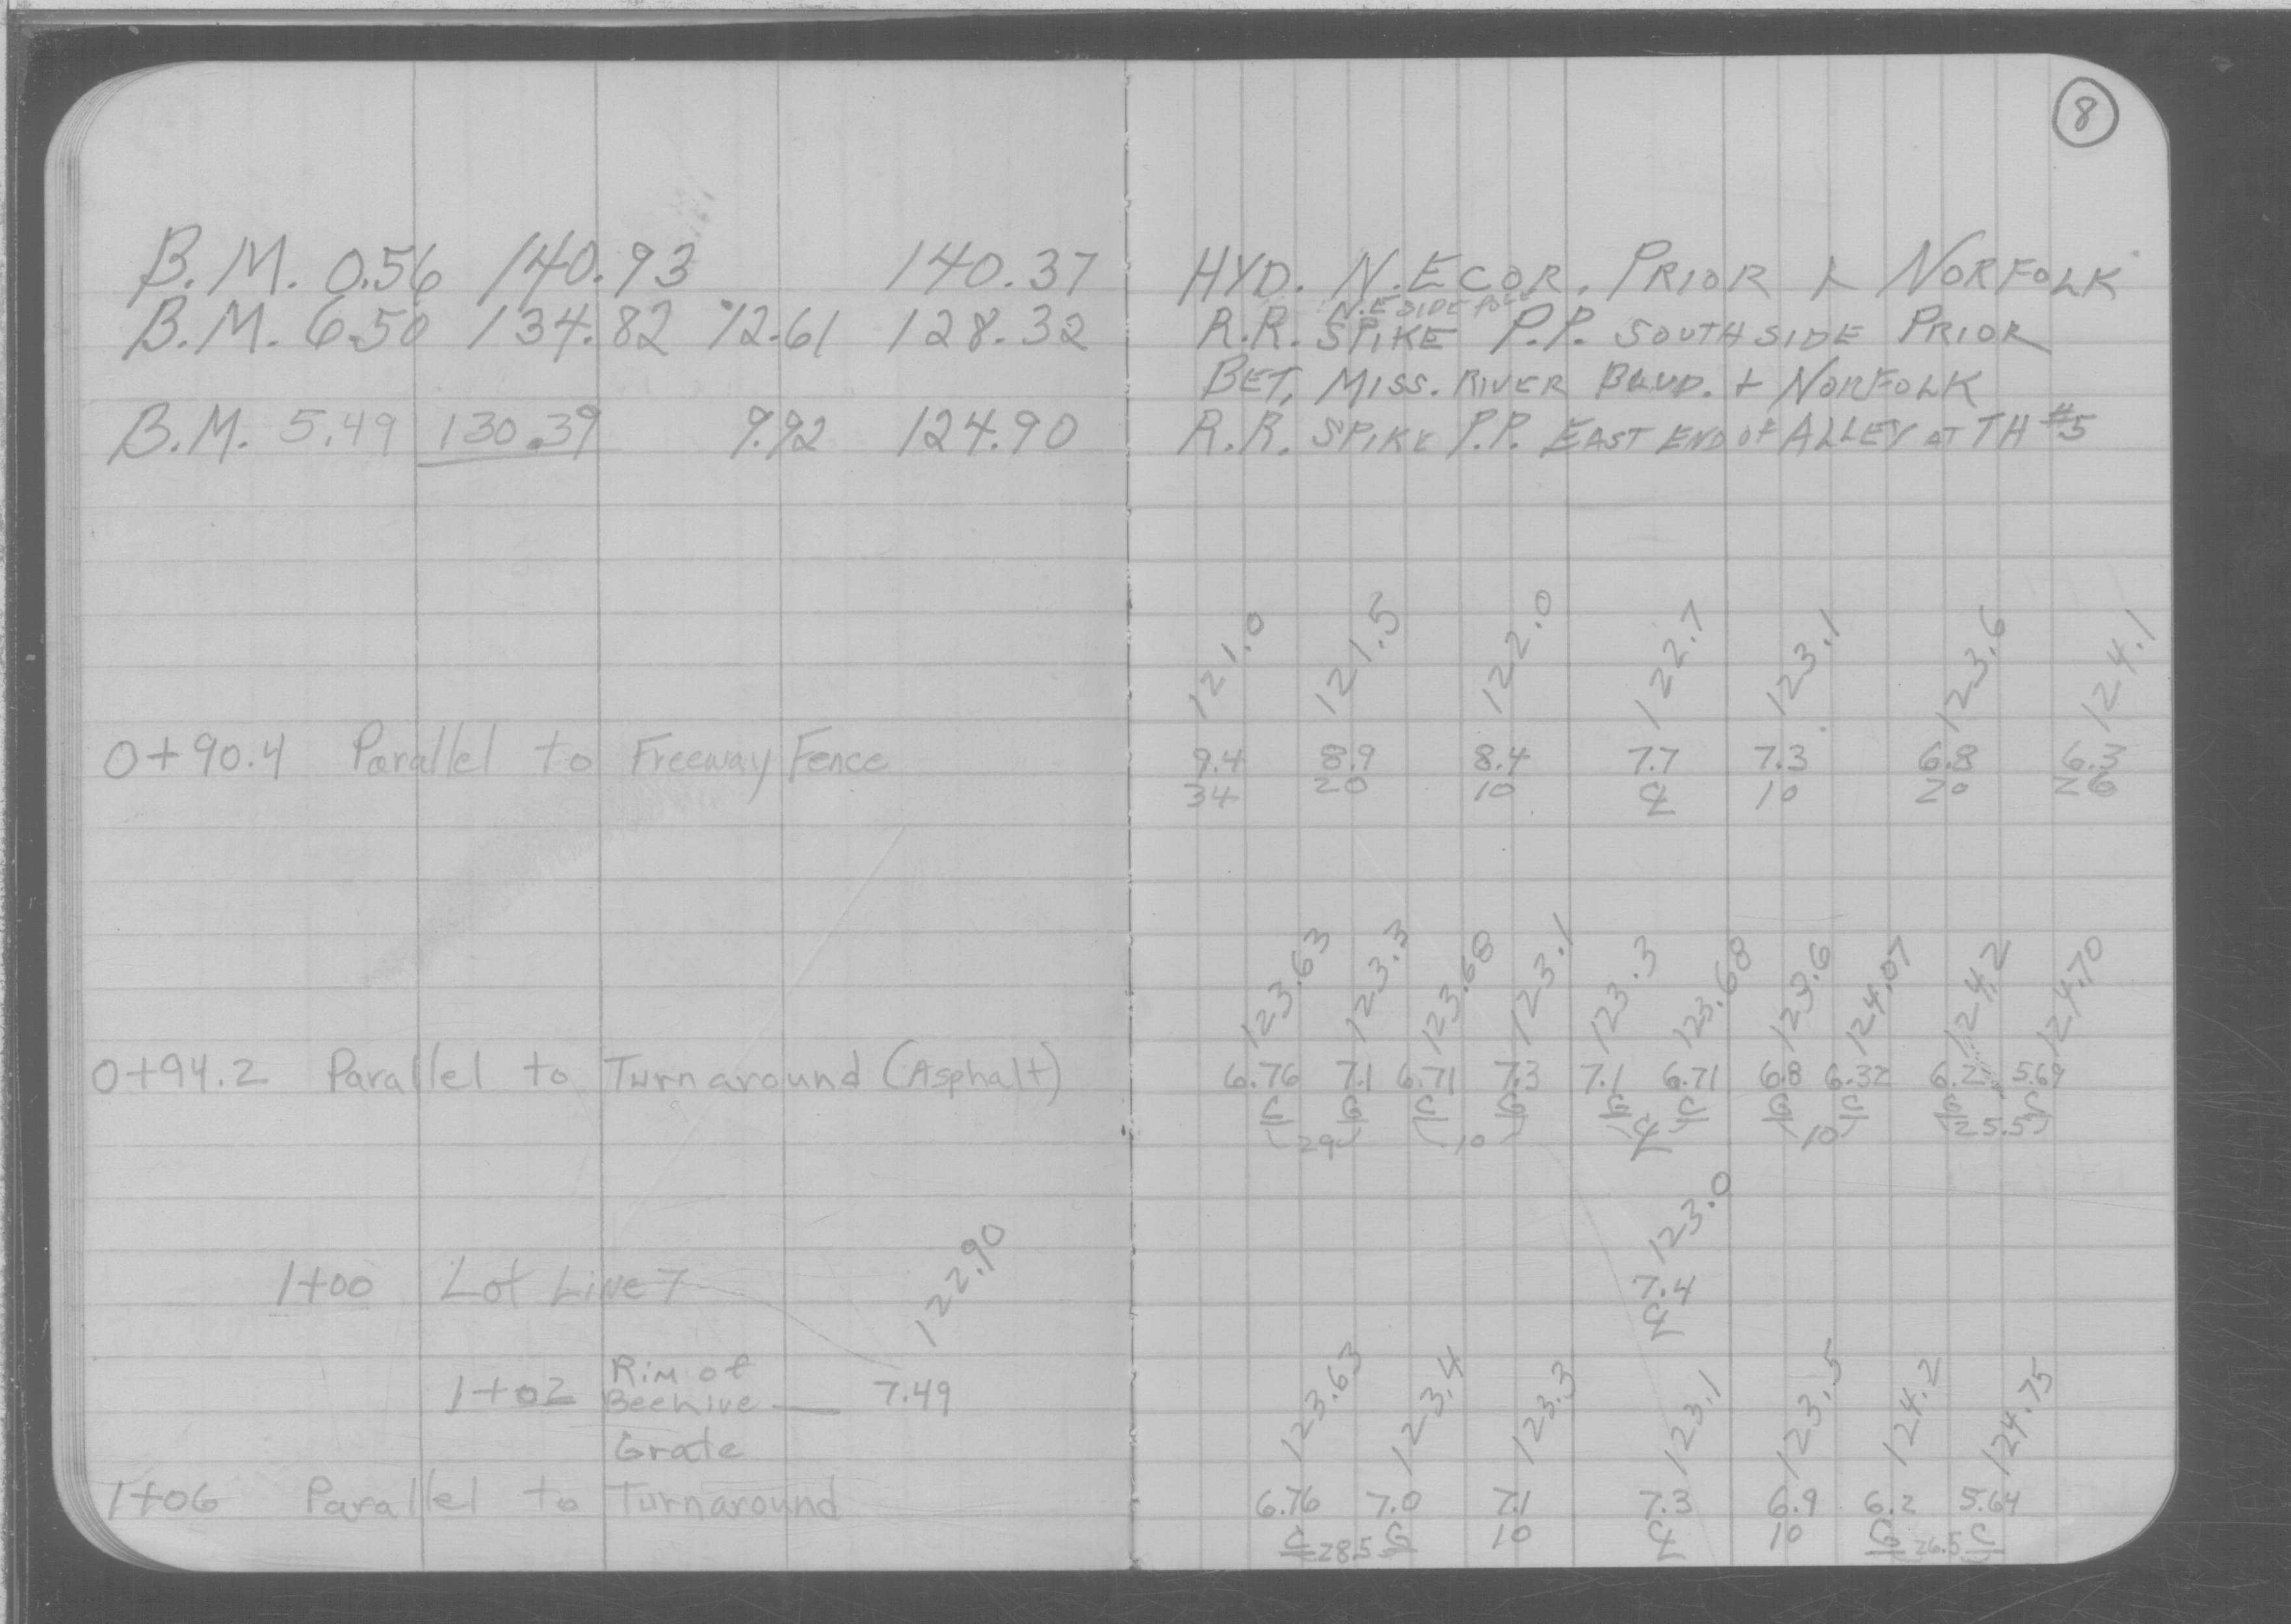 8
B.M. 0.56 140.93 140.37 HYD. N.E COR. PRIOR & NORFOLK
N.E SIDE POLE
B.M. 6.50 134.82 12.61 128.32 R.R. SPIKE P.P. SOUTH SIDE PRIOR
BET. MISS. RIVER BLVD. + NORFOLK
B.M. 5.49 130.39 9.92 124.90 R.R. SPIKE P.P. EAST END OF ALLEY AT TH #5
121.0 121.5 122.0 122.7 123.1 123.6 124.1
0+90.4 Parallel to Freeway Fence 9.4 8.9 8.4 7.7 7.3 6.8 6.3
34 20 10 ℄ 10 20 26
123.63 123.3 123.68 123.1 123.3 123.68 123.6 124.07 124.2 124.70
0+94.2 Parallel to Turnaround (Asphalt) 6.76 7.1 6.71 7.3 7.1 6.71 6.8 6.32 6.2 5.69
C G C G G C G C G C
(29) (10) (℄) (10) (25.5)
123.0
1+00 Lot Line 7 122.90 7.4
℄
Rim of
1+02 Beehive — 7.49
Grate
123.63 123.4 123.3 123.1 123.5 124.2 124.75
1+06 Parallel to Turnaround 6.76 7.0 7.1 7.3 6.9 6.2 5.64
C 28.5 G 10 ℄ 10 G 26.5 C